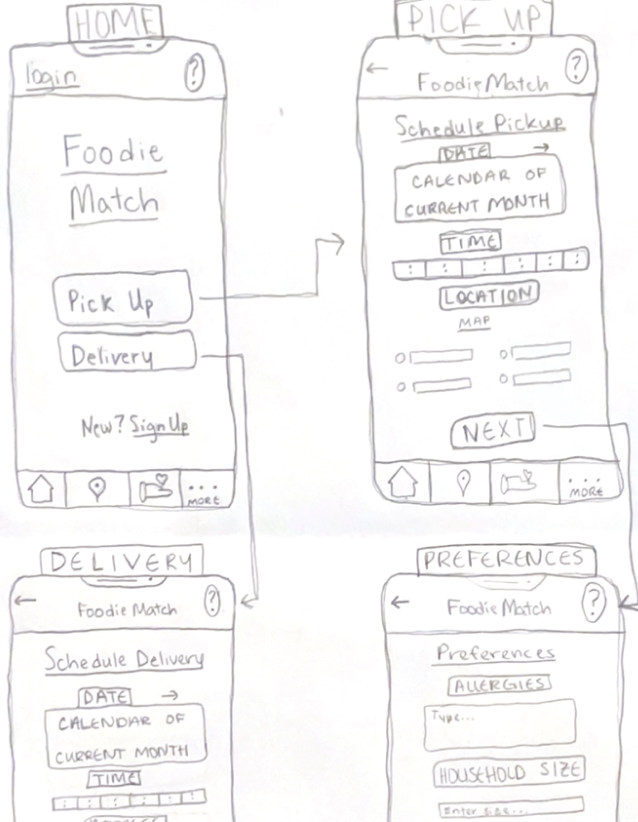 HOME
login
?
Foodie
Match
Pick Up
Delivery
New? Sign Up
... MORE
PICK UP
←
Foodie Match
?
Schedule Pickup
DATE →
CALENDAR OF
CURRENT MONTH
TIME
: : : : : :
LOCATION
MAP
NEXT
... MORE
DELIVERY
←
Foodie Match
?
Schedule Delivery
DATE →
CALENDAR OF
CURRENT MONTH
TIME
: : : : : :
PREFERENCES
←
Foodie Match
?
Preferences
ALLERGIES
Type...
HOUSEHOLD SIZE
Enter size...